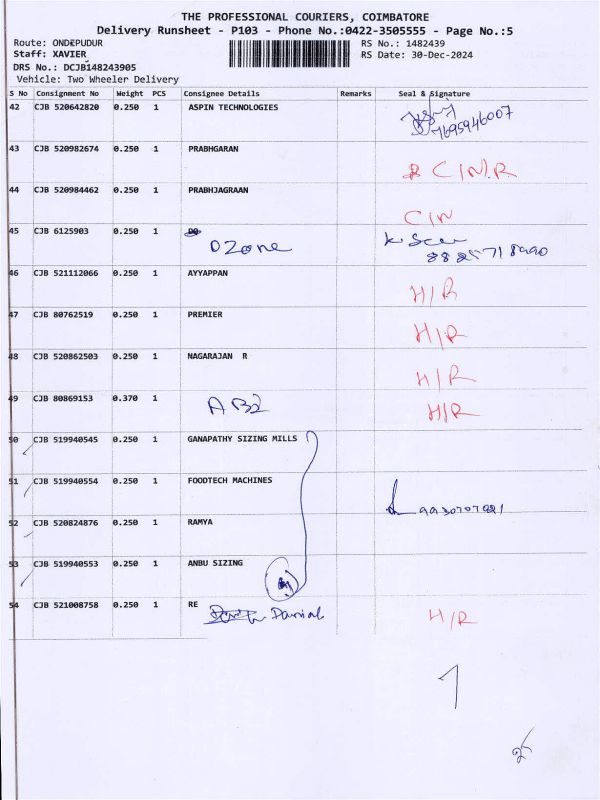 THE PROFESSIONAL COURIERS, COIMBATORE
Delivery Runsheet - P103 - Phone No.:0422-3505555 - Page No.:5
Route: ONDIPUDUR
RS No.: 1482439
Staff: XAVIER
RS Date: 30-Dec-2024
DRS No.: DCJB148243905
Vehicle: Two Wheeler Delivery
S No Consignment No Weight PCS Consignee Details Remarks Seal & Signature
42 CJB 520642820 0.250 1 ASPIN TECHNOLOGIES
7695946007
43 CJB 520982674 0.250 1 PRABHGARAN
C/N.R
44 CJB 520984462 0.250 1 PRABHJAGRAAN
C/N
45 CJB 6125903 0.250 1
OZone
46 CJB 521112066 0.250 1 AYYAPPAN
H/R
47 CJB 80762519 0.250 1 PREMIER
H/R
48 CJB 520862503 0.250 1 NAGARAJAN R
H/R
49 CJB 80869153 0.370 1 AB2 H/R
50 CJB 519940545 0.250 1 GANAPATHY SIZING MILLS
51 CJB 519940554 0.250 1 FOODTECH MACHINES
52 CJB 520824876 0.250 1 RAMYA
53 CJB 519940553 0.250 1 ANBU SIZING
54 CJB 521008758 0.250 1 RE
H/R
1